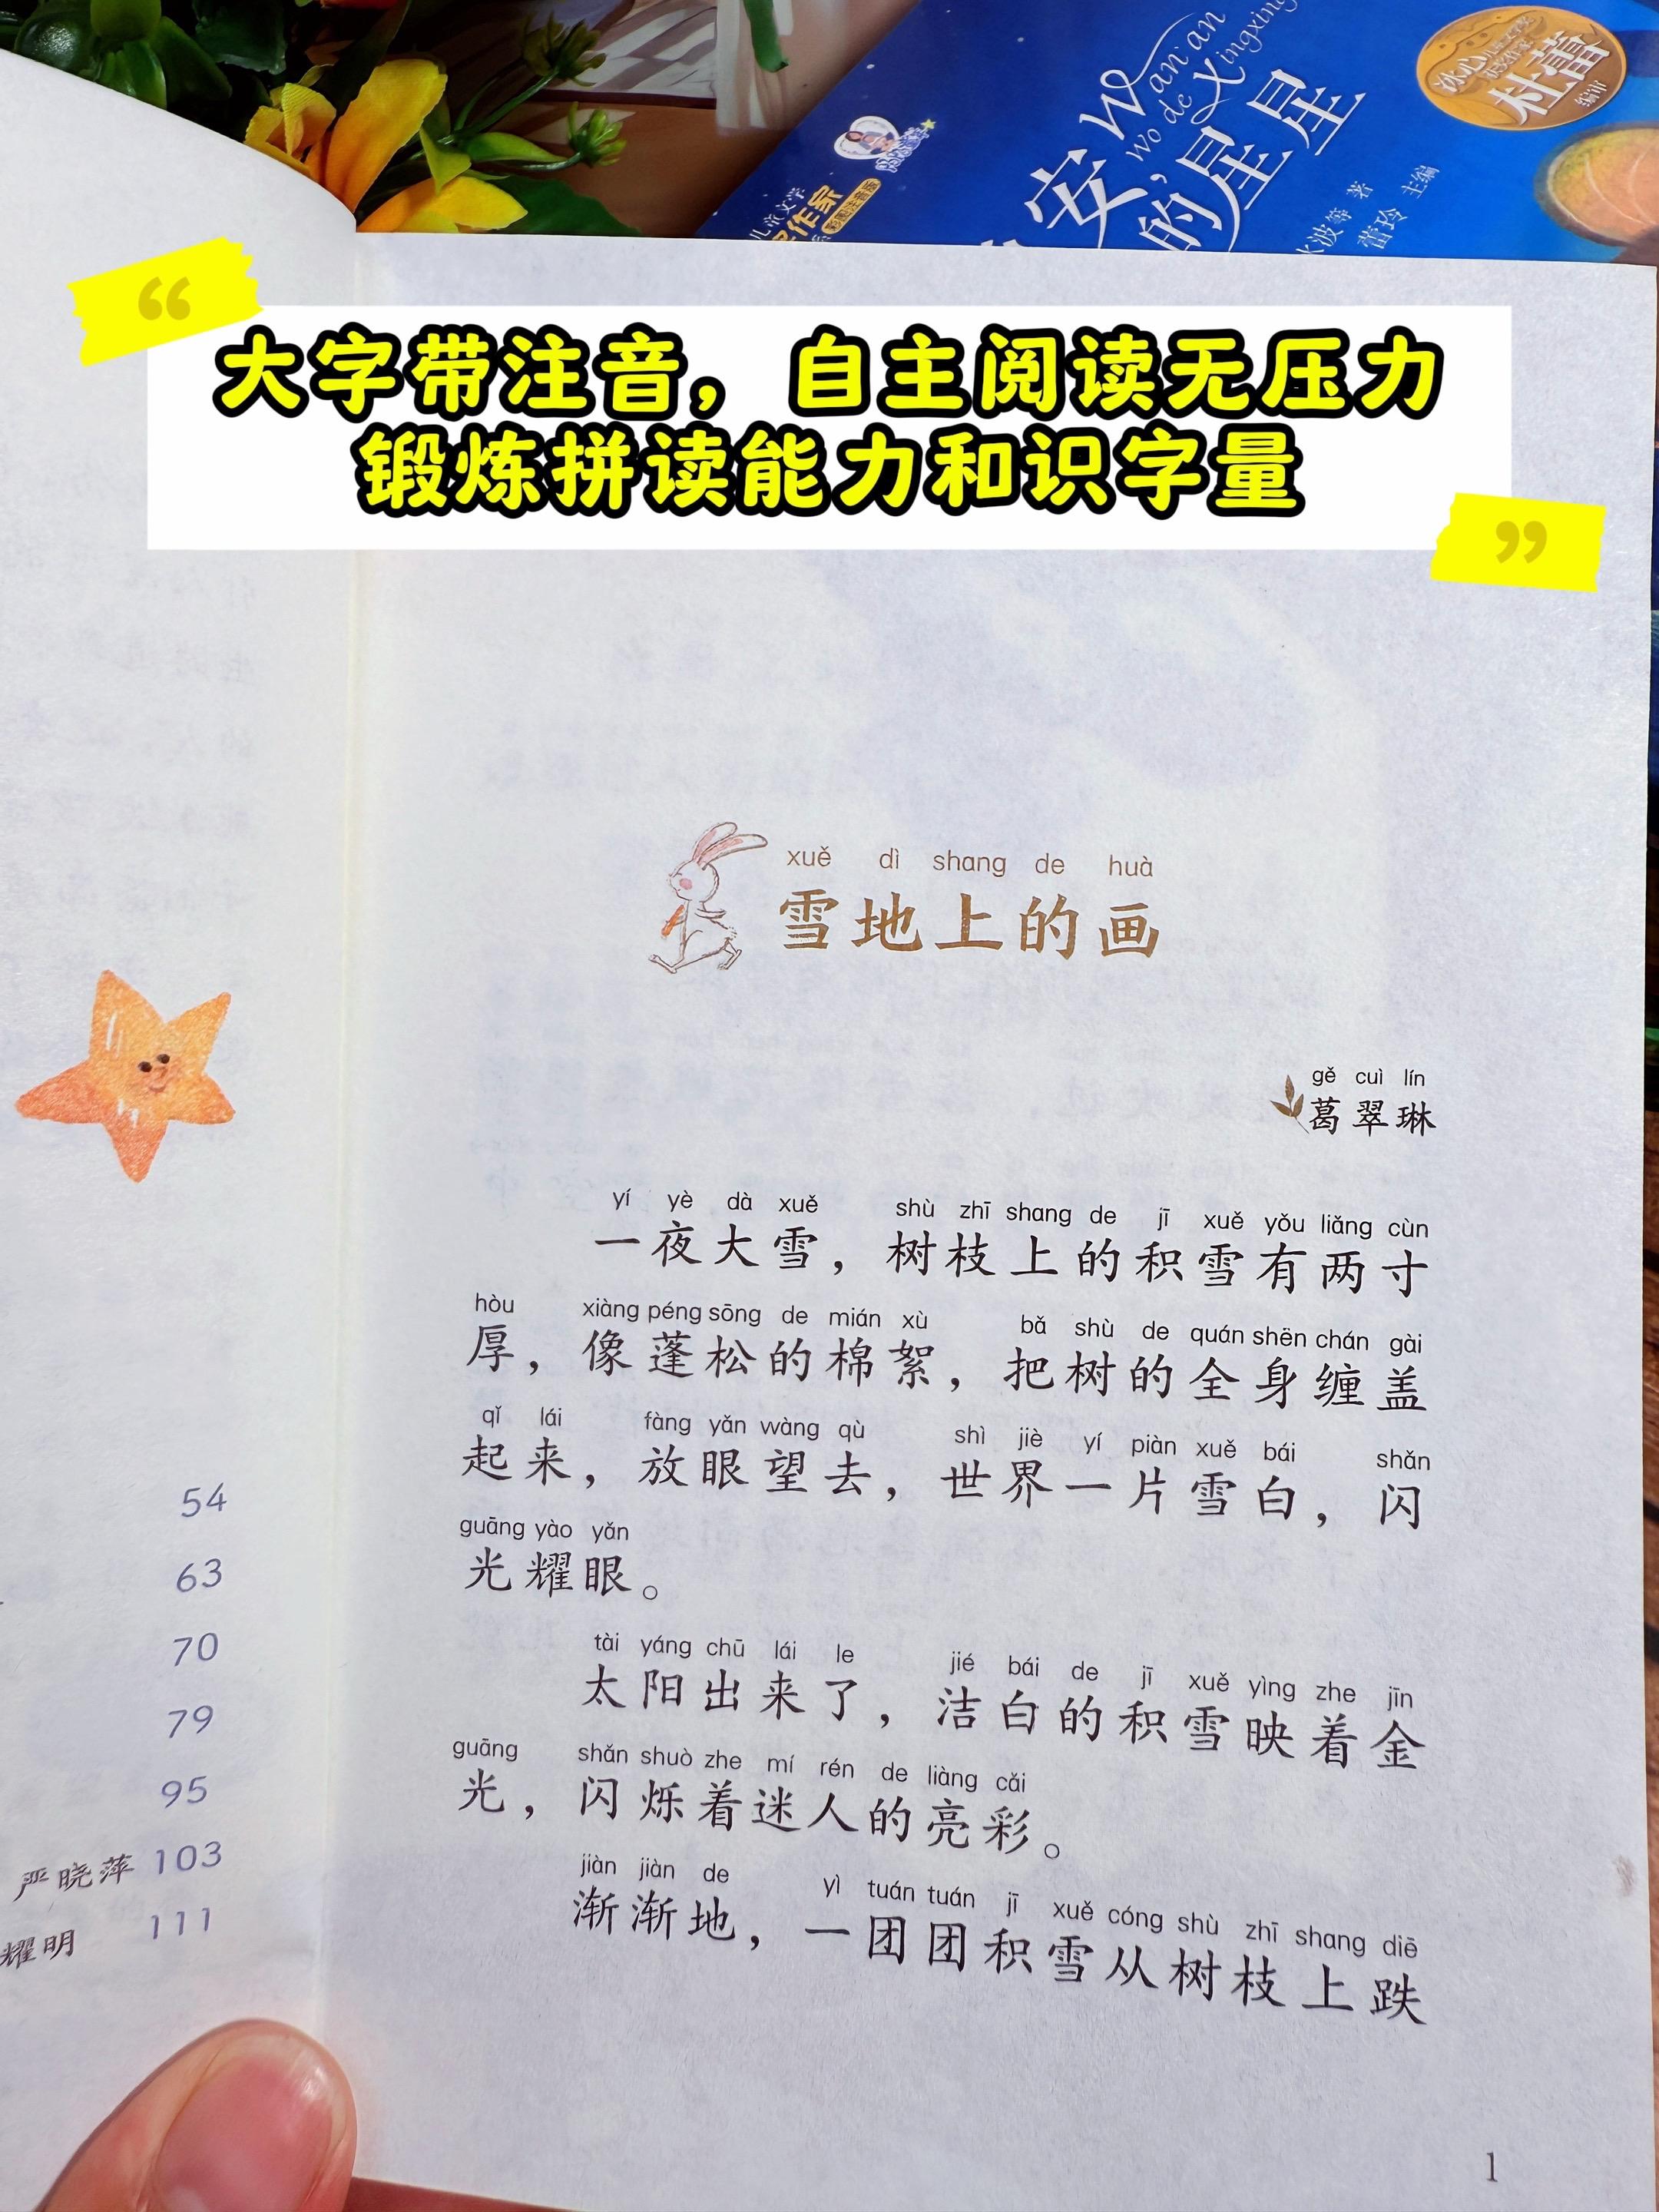 Wan an
wo de Xingxing
安，
的星星
杜蕾
编审
作家
彩图注音版
著
蕾玲 主编
“
大字带注音，自主阅读无压力
锻炼拼读能力和识字量
”
xuě dì shang de huà
雪地上的画
gě cuì lín
葛翠琳
yí yè dà xuě shù zhī shang de jī xuě yǒu liǎng cùn
一夜大雪，树枝上的积雪有两寸
hòu xiàng péng sōng de mián xù bǎ shù de quán shēn chán gài
厚，像蓬松的棉絮，把树的全身缠盖
qǐ lái fàng yǎn wàng qù shì jiè yí piàn xuě bái shǎn
起来，放眼望去，世界一片雪白，闪
guāng yào yǎn
光耀眼。
tài yáng chū lái le jié bái de jī xuě yìng zhe jīn
太阳出来了，洁白的积雪映着金
guāng shǎn shuò zhe mí rén de liàng cǎi
光，闪烁着迷人的亮彩。
jiàn jiàn de yì tuán tuán jī xuě cóng shù zhī shang diē
渐渐地，一团团积雪从树枝上跌
1
54
63
70
79
95
严晓萍 103
耀明 111